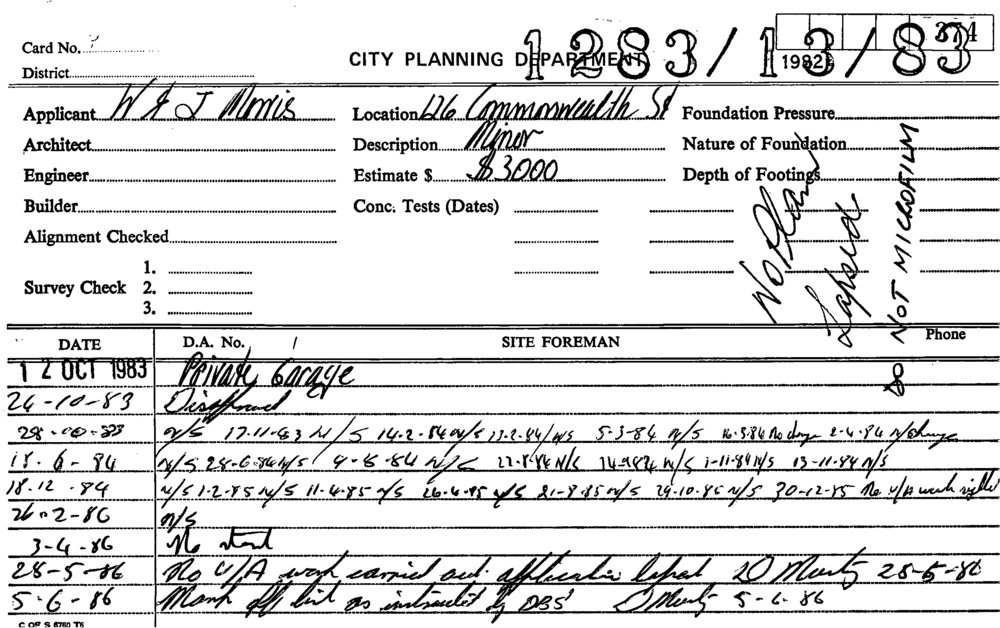 Card No. 374
CITY PLANNING DEPARTMENT 1283/13/83
1982
District
Applicant W & J Morris Location 126 Commonwealth St Foundation Pressure
Architect Description Minor Nature of Foundation
Engineer Estimate $ $3000 Depth of Footings
Builder Conc. Tests (Dates)
Alignment Checked
No Plans
Lapsed
NOT MICROFILM
1.
Survey Check 2.
3.
DATE D.A. No. SITE FOREMAN Phone
12 OCT 1983 Private Garage
24-10-83 Disapproved
28-10-83 N/S 17-11-83 N/S 14-2-84 N/S 13-2-84 N/S 5-3-84 N/S 16-3-84 No change 2-4-84 N/change
18-6-84 N/S 28-6-84 N/S 9-8-84 N/S 22-8-84 N/S 14-9-84 N/S 1-11-84 N/S 13-11-84 N/S
18.12.84 N/S 1-2-85 N/S 11-4-85 N/S 26-4-85 N/S 21-8-85 N/S 29-10-85 N/S 30-12-85 No U/A work
26-2-86 N/S
3-4-86 No start
28-5-86 No U/A work carried out application lapsed 28-5-86
5-6-86 Mark off list as instructed by DBS 5-6-86
C OF S 6760 T6